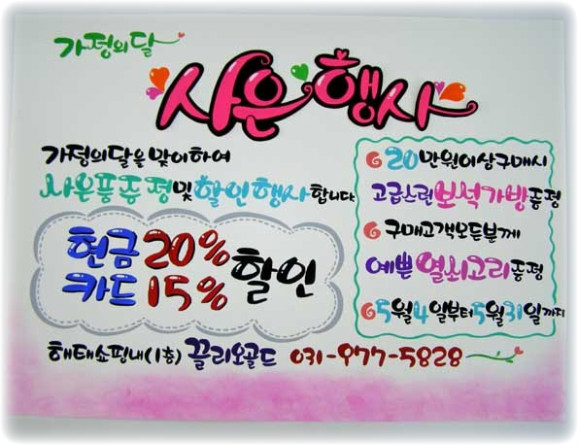 가정의달
사은행사
가정의달을 맞이하여
사은품증정 및 할인행사 합니다
현금 20%
카드 15% 할인
20만원이상구매시
고급스런 보석가방증정
구매고객모든분께
예쁜 열쇠고리증정
5월4일부터 5월31일까지
해태쇼핑내(1층) 끌리오골드 031-977-5828